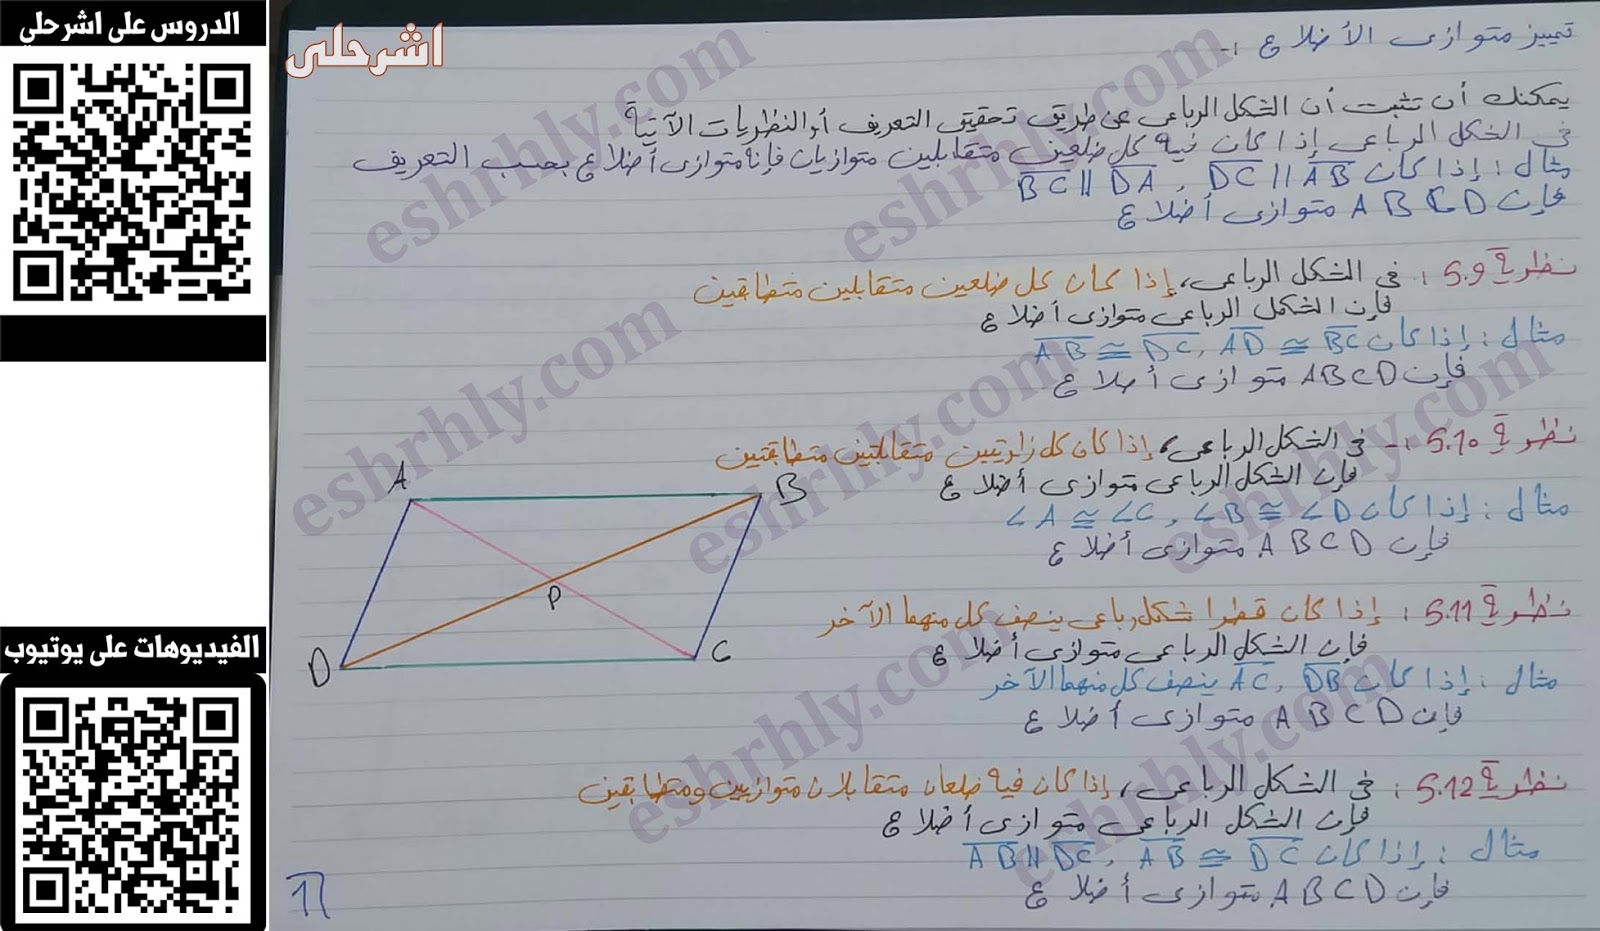 الدروس على اشرحلي
الفيديوهات على يوتيوب
اشرحلى
تمييز متوازى الأضلاع :-
يمكنك أن تثبت أن الشكل الرباعى عن طريق تحقيق التعريف أو النظريات الآتية
فى الشكل الرباعى إذا كان فيه كل ضلعين متقابلين متوازيان فإنه متوازى أضلاع بحسب التعريف
مثال : إذا كان DC // AB , BC // DA
فإن ABCD متوازى أضلاع
نظرية 5.9 : فى الشكل الرباعى، إذا كان كل ضلعين متقابلين متطابقين
فإن الشكل الرباعى متوازى أضلاع
مثال : إذا كان AB ≅ DC , AD ≅ BC
فإن ABCD متوازى أضلاع
نظرية 5.10 :- فى الشكل الرباعى، إذا كان كل زاويتين متقابلتين متطابقتين
فإن الشكل الرباعى متوازى أضلاع
مثال : إذا كان ∠A ≅ ∠C , ∠B ≅ ∠D
فإن ABCD متوازى أضلاع
نظرية 5.11 : إذا كان قطرا شكل رباعى ينصف كل منهما الآخر
فإن الشكل الرباعى متوازى أضلاع
مثال : إذا كان AC , DB ينصف كل منهما الآخر
فإن ABCD متوازى أضلاع
نظرية 5.12 : فى الشكل الرباعى، إذا كان فيه ضلعان متقابلان متوازيين ومتطابقين
فإن الشكل الرباعى متوازى أضلاع
مثال : إذا كان AB // DC , AB ≅ DC
فإن ABCD متوازى أضلاع
A
B
P
D
C
eshrhly.com
eshrhly.com
eshrhly.com
eshrhly.com
eshrhly.com
eshrhly.com
eshrhly.com